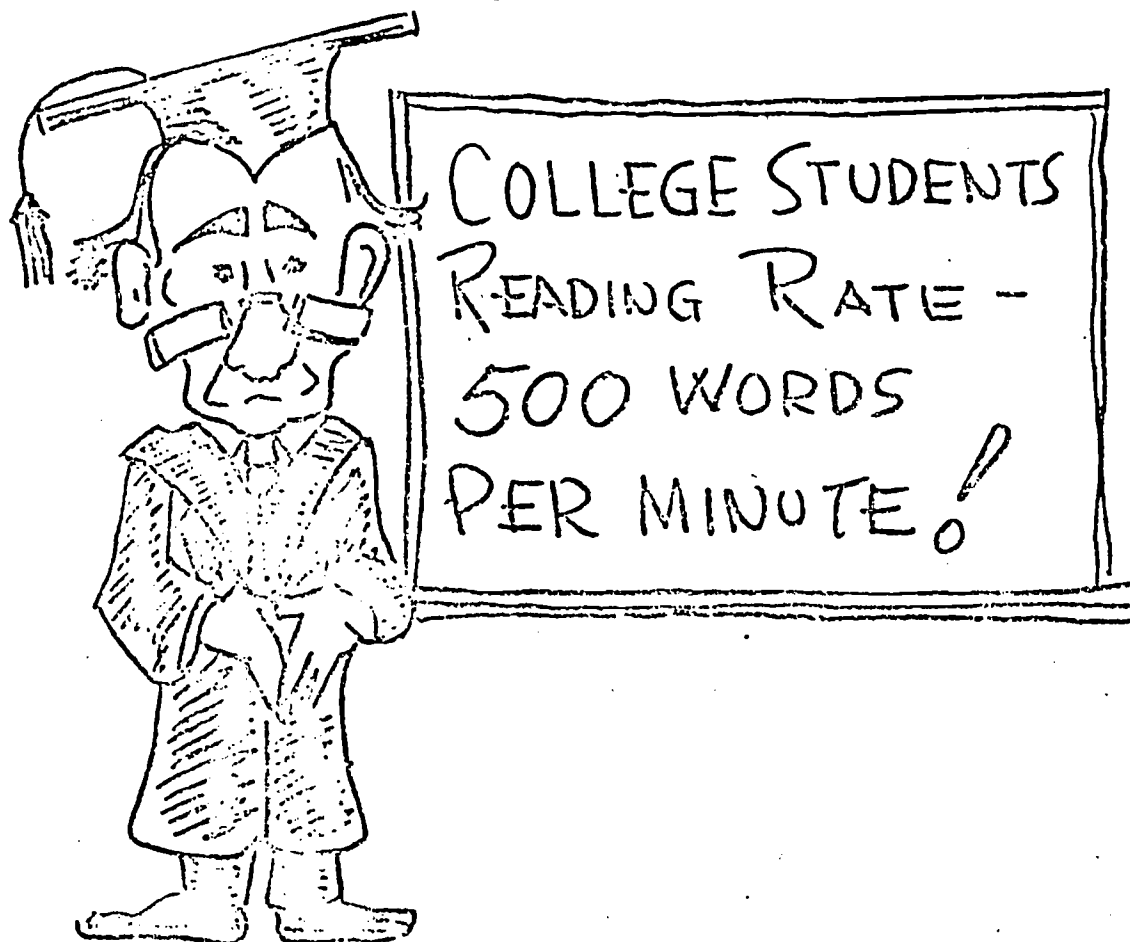 COLLEGE STUDENTS
READING RATE -
500 WORDS
PER MINUTE!